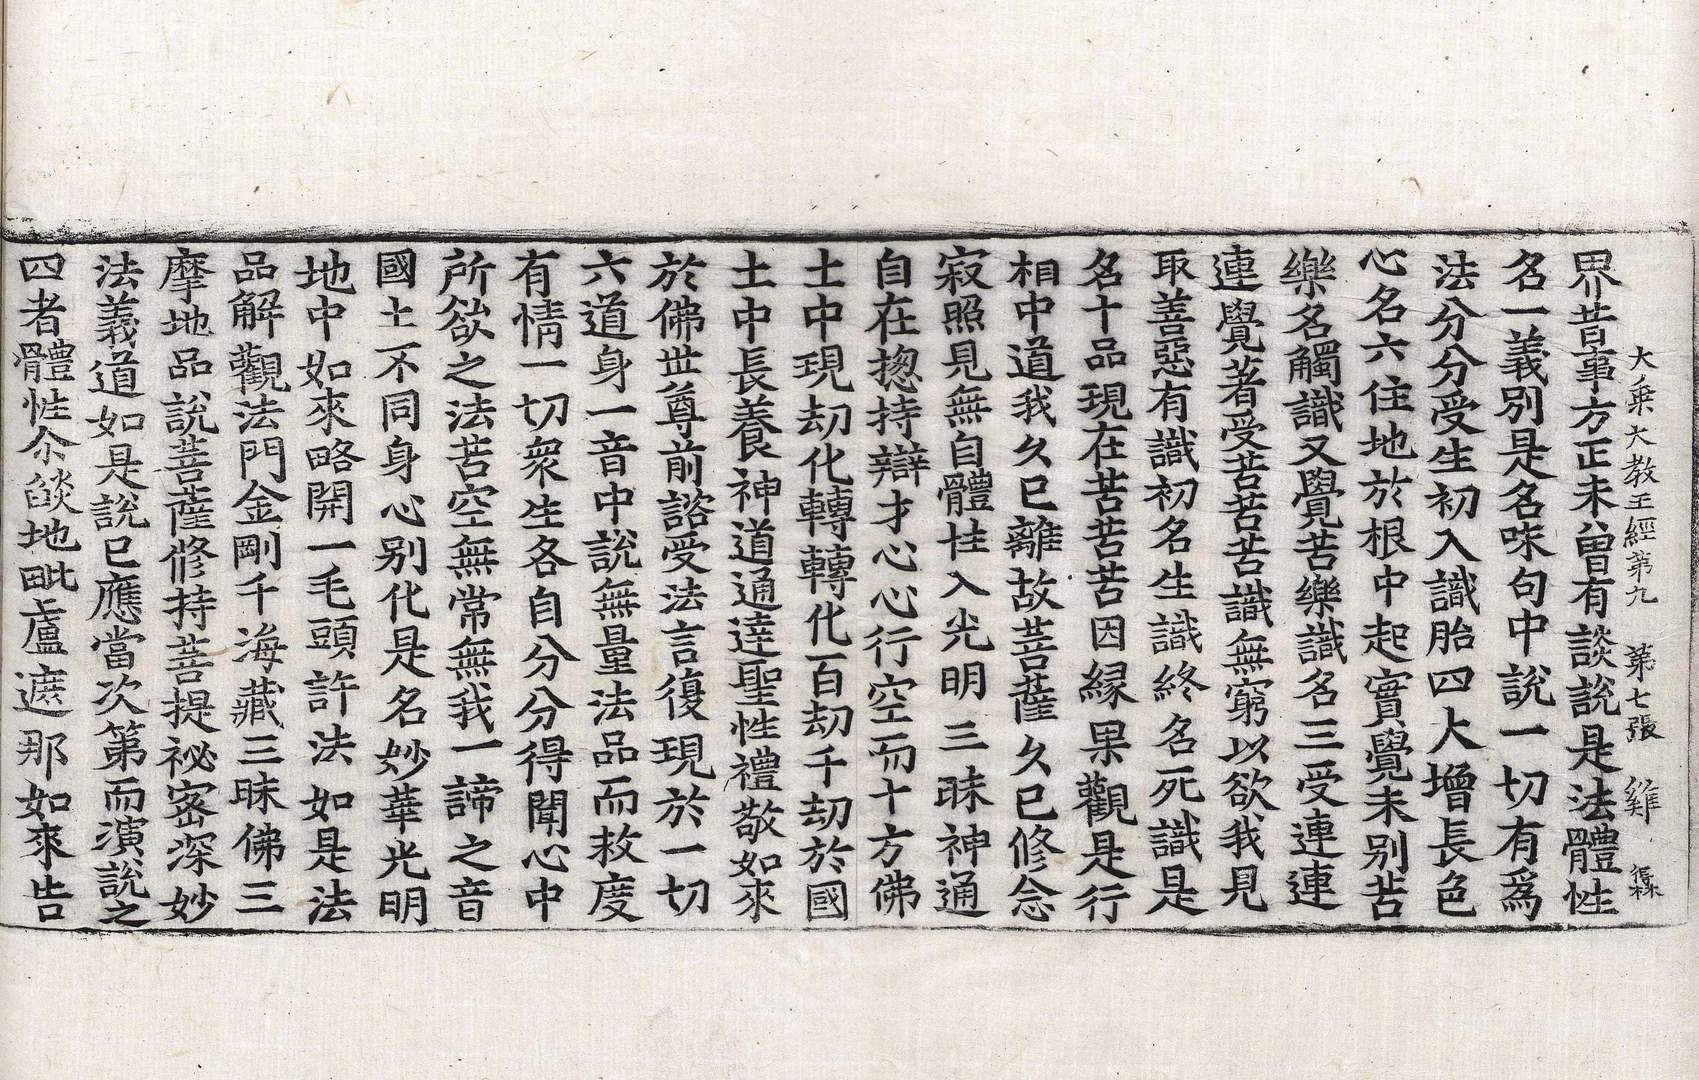 大乗大教王經第九　第七張　雞
界昔事方正未曾有談說是法體性
名一義別是名味句中說一切有爲
法分分受生初入識胎四大增長色
心名六住地於根中起實覺未别苦
樂名觸識又覺苦樂識名三受連連
連覺著受苦苦苦識無窮以欲我見
取善惡有識初名生識終名死識是
名十品現在苦苦苦因縁果觀是行
相中道我久已離故菩薩久已修念
寂照見無自體性入光明三昧神通
自在揔持辯才心心行空而十方佛
土中現劫化轉轉化百劫千劫於國
土中長養神道通達聖性禮敬如來
於佛世尊前諮受法言復現於一切
六道身一音中說無量法品而救度
有情一切衆生各自分分得聞心中
所欲之法苦空無常無我一諦之音
國土不同身心別化是名妙華光明
地中如來略開一毛頭許法如是法
品解觀法門金剛千海藏三昧佛三
摩地品說菩薩修持菩提祕密深妙
法義道如是說已應當次第而演說之
四者體性尒燄地毗盧遮那如來告